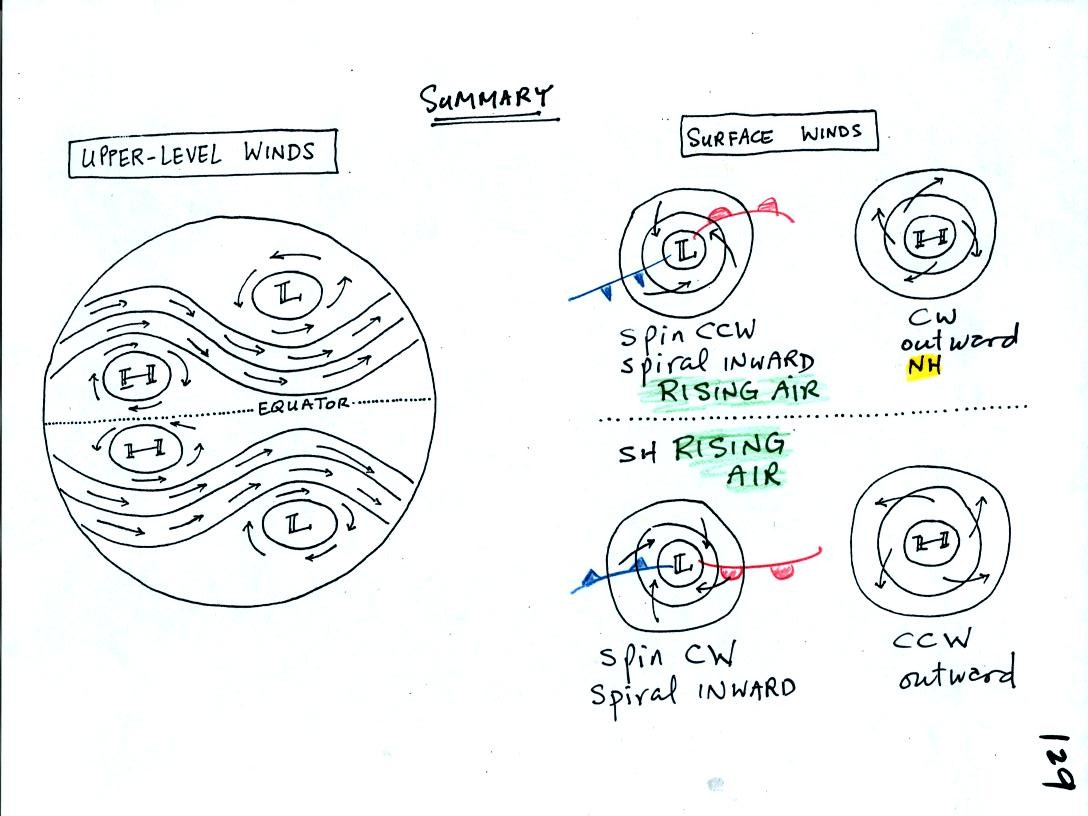 SUMMARY
UPPER-LEVEL WINDS
L
H
EQUATOR
H
L
SURFACE WINDS
L
H
spin CCW
spiral INWARD
RISING AIR
CW
outward
NH
SH RISING
AIR
L
H
spin CW
spiral INWARD
CCW
outward
129